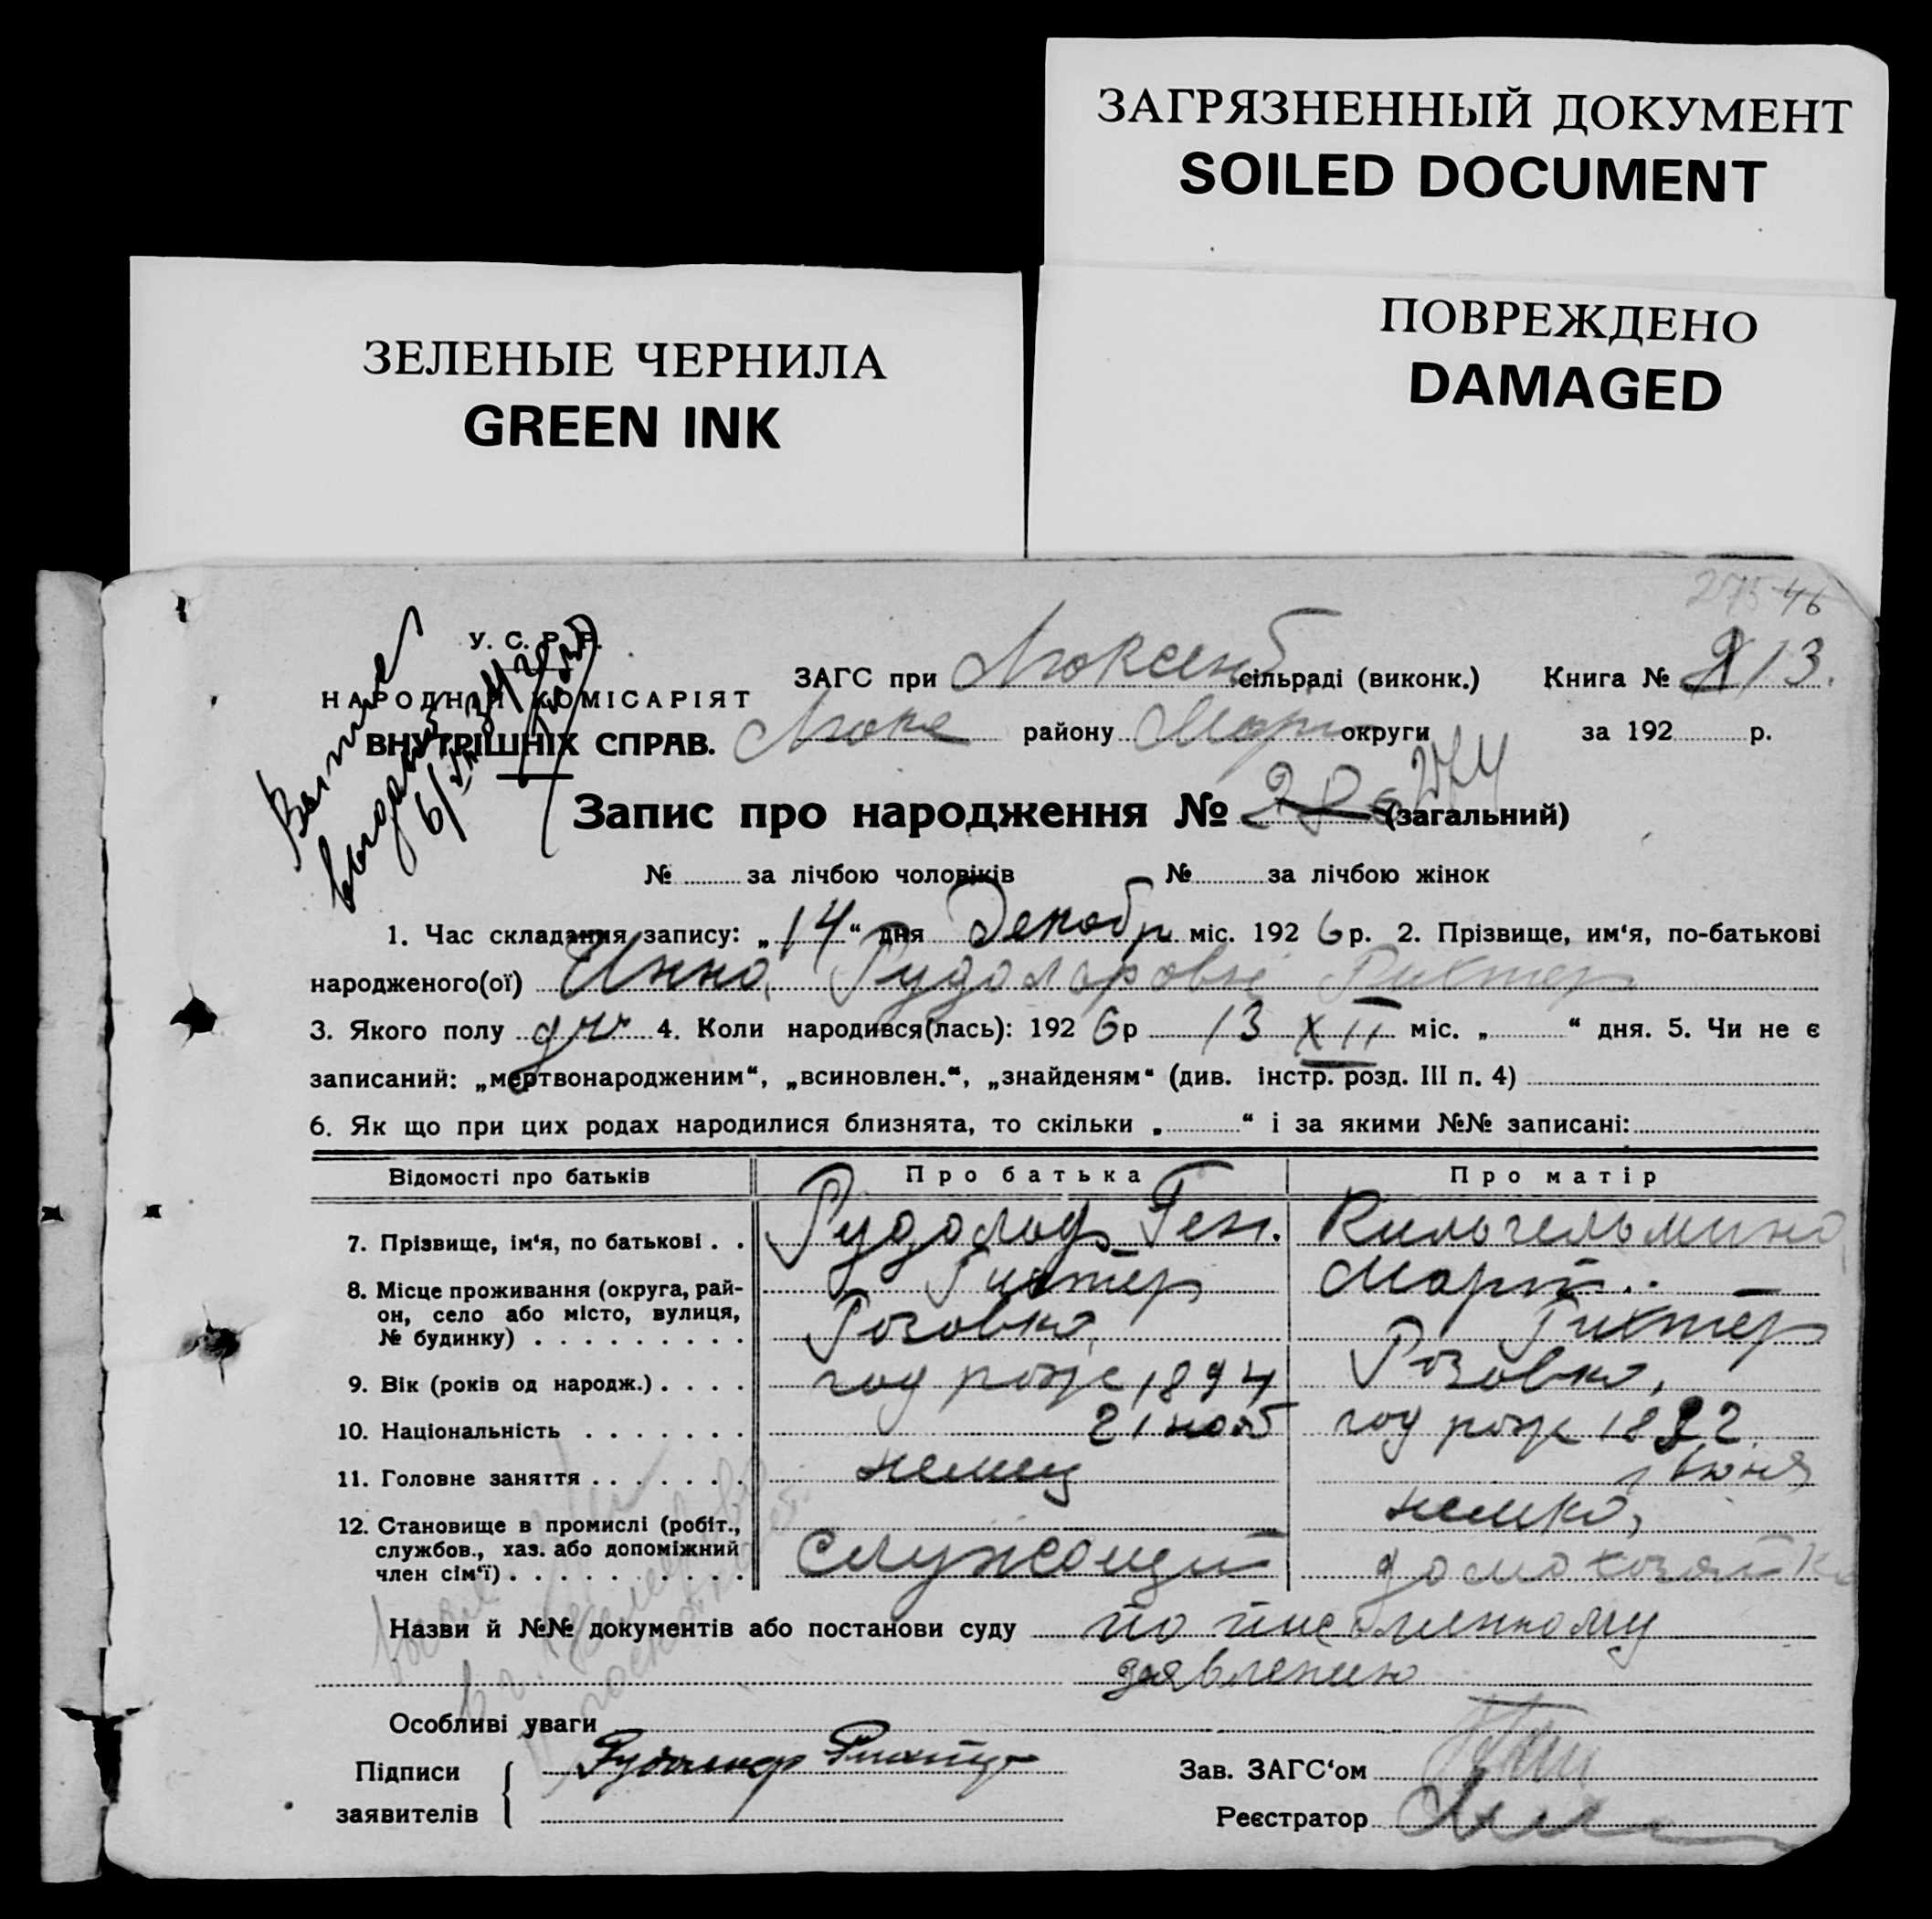 ЗАГРЯЗНЕННЫЙ ДОКУМЕНТ
SOILED DOCUMENT
ЗЕЛЕНЫЕ ЧЕРНИЛА
GREEN INK
ПОВРЕЖДЕНО
DAMAGED
275 46
У. С. Р. Р.
НАРОДНИЙ КОМІСАРІЯТ
ВНУТРІШНІХ СПРАВ.
ЗАГС при Люксенб сільраді (виконк.) Книга № 13.
Люкс району Марі округи за 192 р.
Запис про народження № 274 (загальний)
№ за лічбою чоловіків № за лічбою жінок
1. Час складання запису: „14“ дня Декабр міс. 1926 р. 2. Прізвище, им‘я, по-батькові
народженого(ої) Инна Рудольфовн Рихтер
3. Якого полу 4. Коли народився(лась): 1926 р 13 XII міс. „ “ дня. 5. Чи не є
записаний: „мертвонародженим“, „всиновлен.“, „знайденям“ (див. інстр. розд. III п. 4)
6. Як що при цих родах народилися близнята, то скільки „ “ і за якими №№ записані:
Відомості про батьків Про батька Про матір
7. Прізвище, ім‘я, по батькові Рудольф Ген. Вильгельмина
Рихтер Март.
8. Місце проживання (округа, рай-
он, село або місто, вулиця,
№ будинку) Розовка Рихтер
Розовка,
9. Вік (років од народж.) год рожд 1894
21 нояб год рожд 1892
10. Національність
11. Головне заняття немец июня
немка,
12. Становище в промислі (робіт.,
службов., хаз. або допоміжний
член сім‘ї) служащий домохозяйка
Назви й №№ документів або постанови суду по письменному
заявлению
Особливі уваги
Підписи
заявителів Рудольф Рихтер
Зав. ЗАГС‘ом
Реєстратор